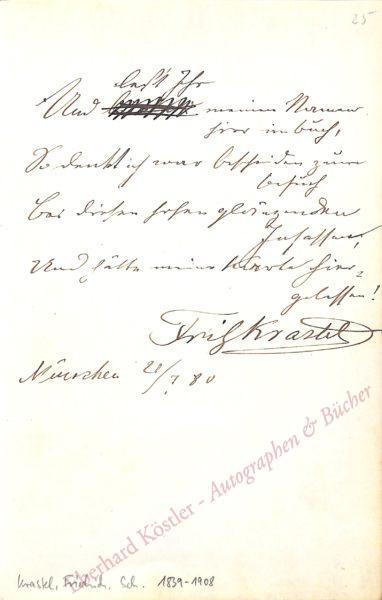 25
lest Ihr
Und meinen Namen
hier im buch,
So denkt ich war bescheiden zum
besuch
bei diesen hohen glänzenden
Insassen,
Und hätte meine Karte hier
gelassen!
Fritz Krastel
München 20/7 80
Eberhard Köstler - Autographen & Bücher
Krastel, Friedrich. Sch. 1839-1908